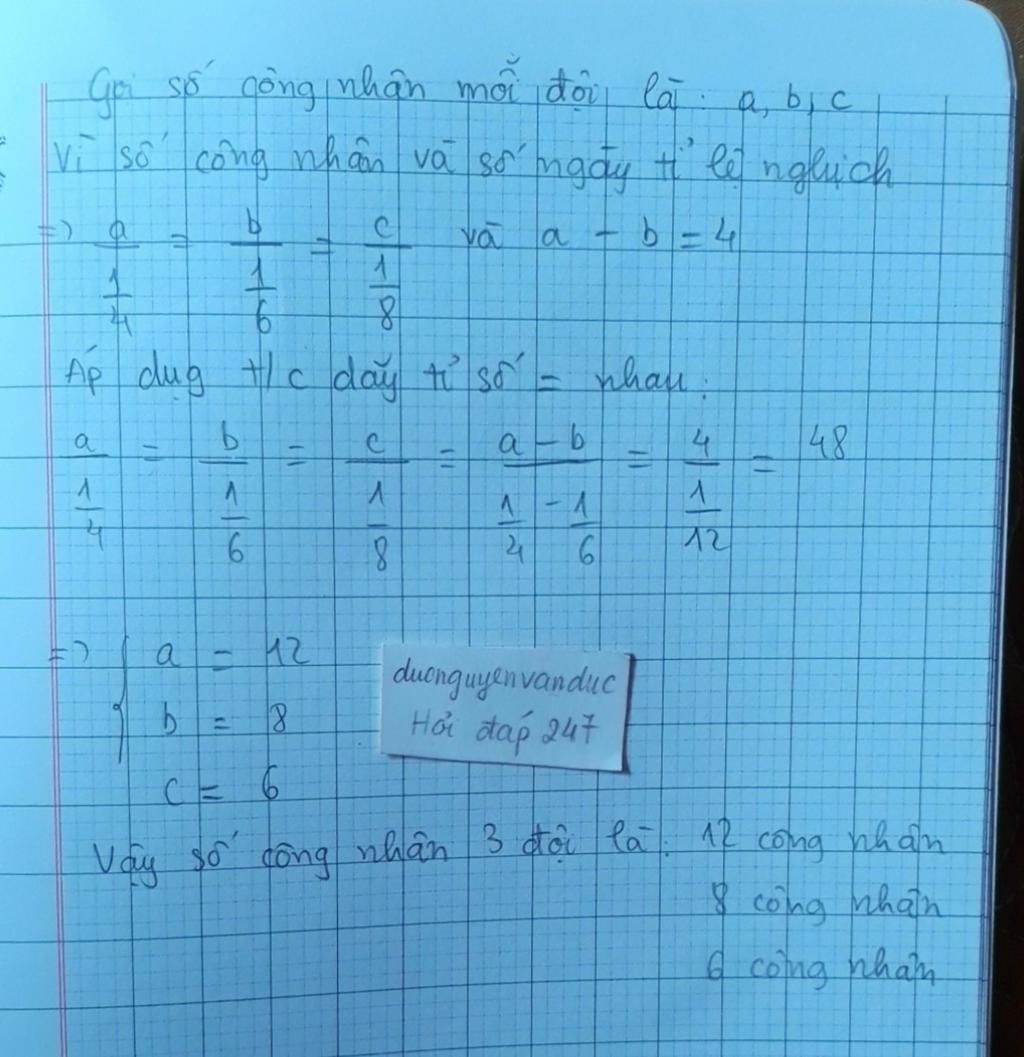 Gọi số công nhân mỗi đội là: a, b, c
Vì số công nhân và số ngày tỉ lệ nghịch
=> a/(1/4) = b/(1/6) = c/(1/8) và a - b = 4
Áp dụg t/c dãy tỉ số = nhau:
a/(1/4) = b/(1/6) = c/(1/8) = (a - b)/(1/4 - 1/6) = 4/(1/12) = 48
=> { a = 12
b = 8
c = 6
duonguyenvanduc
Hỏi đáp 247
Vậy số công nhân 3 đội là: 12 công nhân
8 công nhân
6 công nhân